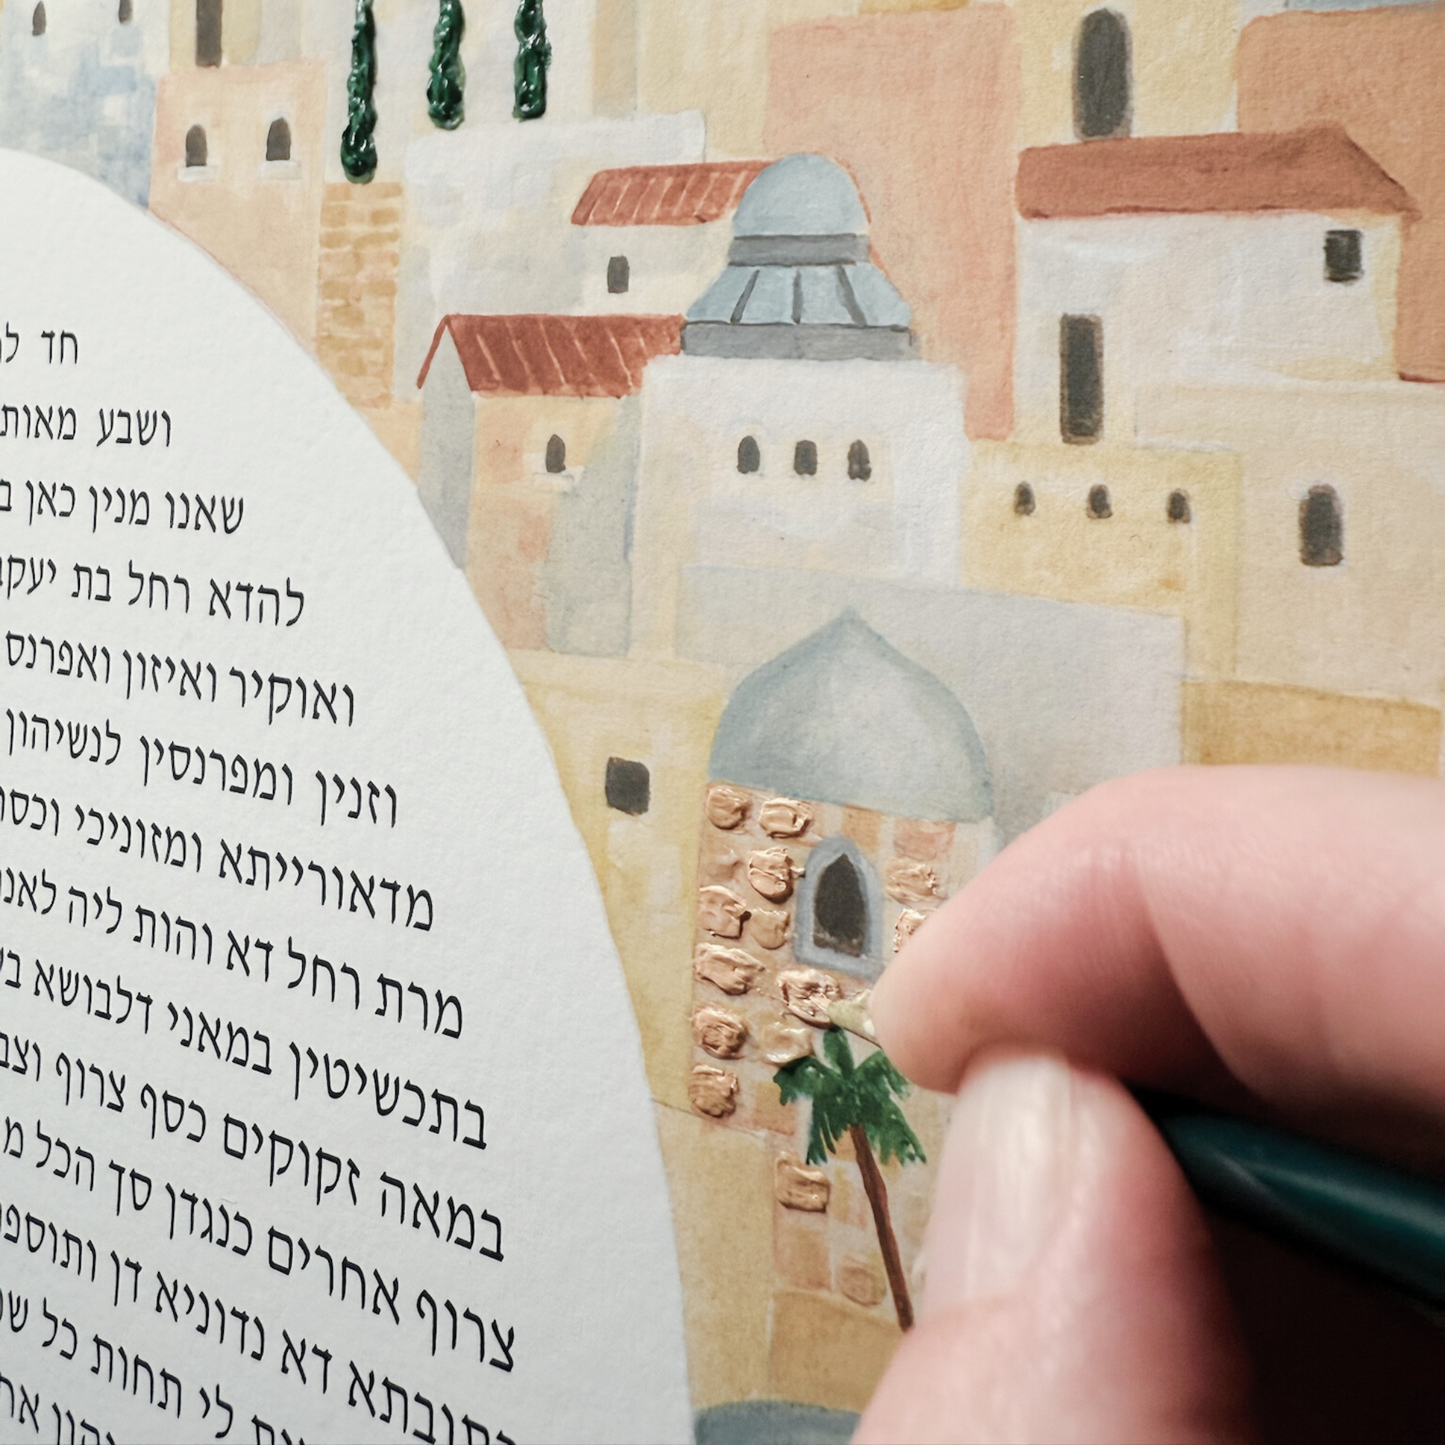 חד
ושבע מאות
שאנו מנין כאן
להדא רחל בת
ואוקיר ואיזון ואפרנס
וזנין ומפרנסין לנשיהון
מדאורייתא ומזוניכי
מרת רחל דא והות ליה
בתכשיטין במאני דלבושא
במאה זקוקים כסף צרוף
צרוף אחרים כנגדן סך הכל
דא נדוניא דן
לי תחות כל